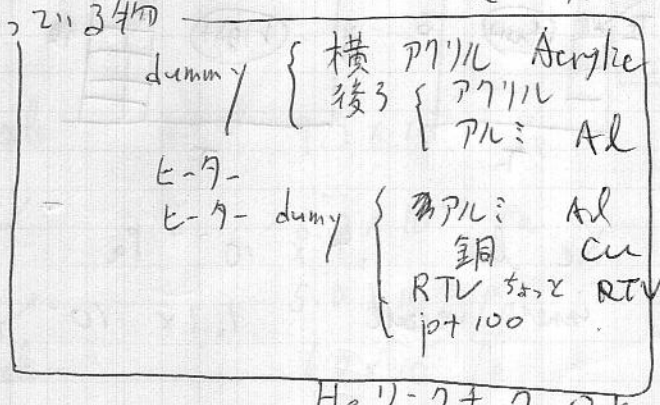 っている物
dummy { 横 アクリル Acrylic
後ろ { アクリル
アルミ Al
ヒーター
ヒーター dumy { アルミ Al
銅 Cu
RTV ちょっと RTV
pt 100
Heリークチェック OK